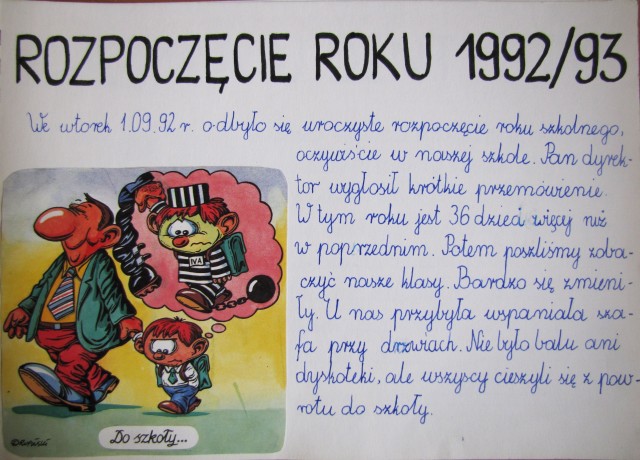 ROZPOCZĘCIE ROKU 1992/93
We wtorek 1.09.92 r. odbyło się uroczyste rozpoczęcie roku szkolnego,
oczywiście w naszej szkole. Pan dyrek-
tor wygłosił krótkie przemówienie.
W tym roku jest 36 dzieci więcej niż
w poprzednim. Potem poszliśmy zoba-
czyć nasze klasy. Bardzo się zmieni-
ły. U nas przybyła wspaniała sza-
fa przy drzwiach. Nie było balu ani
dyskoteki, ale wszyscy cieszyli się z pow-
rotu do szkoły.
Do szkoły...